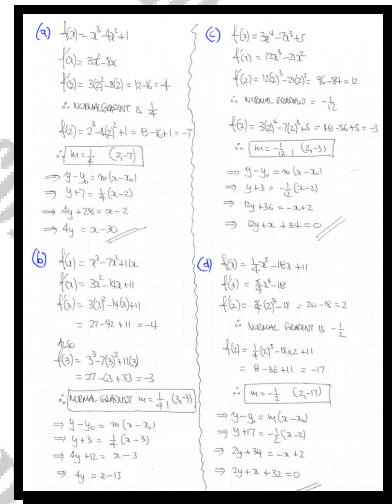 (a) f(x) = x³-4x²+1
f'(x) = 3x²-8x
f'(2) = 3(2)²-8(2) = 12-16 = -4
∴ NORMAL GRADIENT IS 1/4
f(2) = 2³-4(2)²+1 = 8-16+1 = -7
∴ m = 1/4 (2,-7)
⇒ y-y₀ = m(x-x₀)
⇒ y+7 = 1/4(x-2)
⇒ 4y+28 = x-2
⇒ 4y = x-30
(b) f(x) = x³-7x²+11x
f'(x) = 3x²-14x+11
f'(3) = 3(3)²-14(3)+11
= 27-42+11 = -4
ALSO
f(3) = 3³-7(3)²+11(3)
= 27-63+33 = -3
∴ NORMAL GRADIENT m = 1/4 (3,-3)
⇒ y-y₀ = m(x-x₀)
⇒ y+3 = 1/4(x-3)
⇒ 4y+12 = x-3
⇒ 4y = x-15
(c) f(x) = 3x⁴-7x³+5
f'(x) = 12x³-21x²
f'(2) = 12(2)³-21(2)² = 96-84 = 12
∴ NORMAL GRADIENT = -1/12
f(2) = 3(2)⁴-7(2)³+5 = 48-56+5 = -3
∴ m = -1/12 (2,-3)
⇒ y-y₀ = m(x-x₀)
⇒ y+3 = -1/12(x-2)
⇒ 12y+36 = -x+2
⇒ 12y+x+34 = 0
(d) f(x) = 1/4x⁵-18x+11
f'(x) = 5/4x⁴-18
f'(2) = 5/4(2)⁴-18 = 20-18 = 2
∴ NORMAL GRADIENT IS -1/2
f(2) = 1/4(2)⁵-18×2+11
= 8-36+11 = -17
∴ m = -1/2 (2,-17)
⇒ y-y₀ = m(x-x₀)
⇒ y+17 = -1/2(x-2)
⇒ 2y+34 = -x+2
⇒ 2y+x+32 = 0